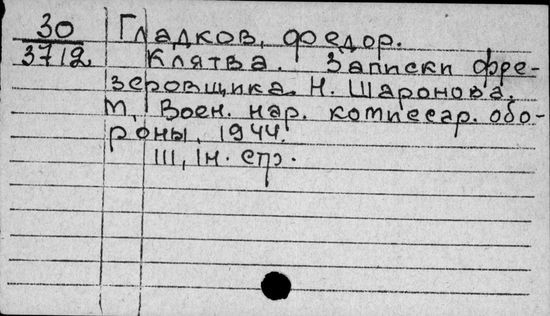 30 Гладков, Федор.
3712 Клятва. Записки фре-
зеровщика Н. Шаронова.
М, Воен. нар. комиссар. обо-
роны, 1944.
III, Iн. стр.